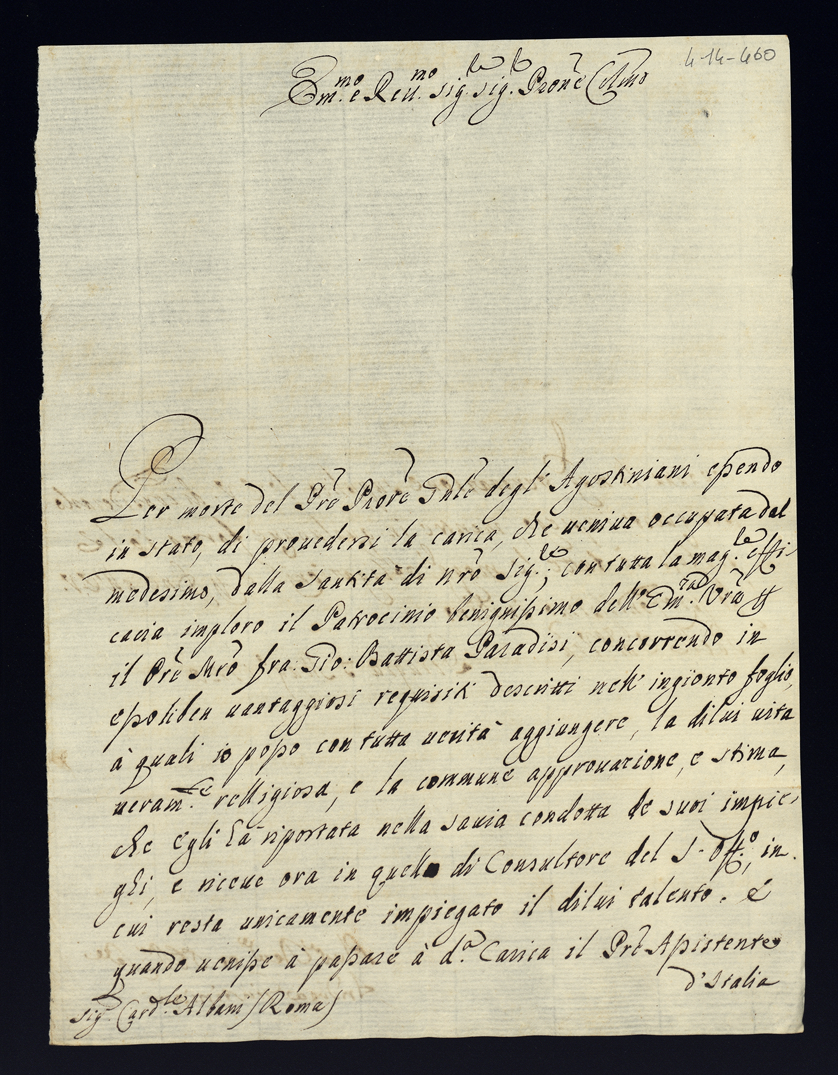 4-14-460
Em.mo e Reu.mo Sig.re Sig.r Prone Colmo
Per morte del Prê Priorê Gnlê degl' Agostiniani essendo
in stato, di prouedersi la carica, che ueniua occupata dal
medesimo, dalla Santità di Nrô Sig.re, con tutta la mag.re effi-
cacia imploro il Patrocinio benignissimo dell' Em.za Vrâ
il Prê Mrô fra: Gio: Battista Paradisi, concorrendo in
esso li ben uantaggiosi requisiti descritti nell' ingionto foglio,
à quali io posso con tutta uerità aggiungere, la di lui uita
ueram.te relligiosa, e la commune approuazione, e stima,
che egli hà riportata nella sauia condotta de suoi impie-
ghi, e riceue ora in quello di Consultore del S. Off.o, in
cui resta unicamente impiegato il di lui talento. E
quando uenisse à passare à d.a Carica il Prê Assistente
d'Italia
Sig.r Card.le Albani (Roma)